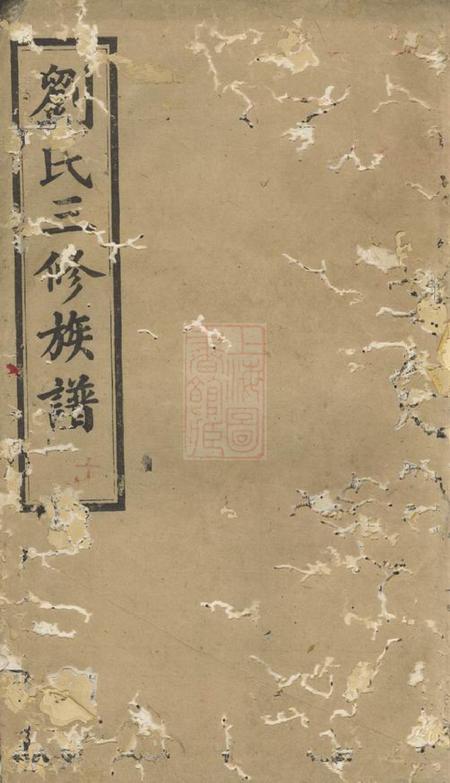 劉氏三修族譜
上海圖
書館藏